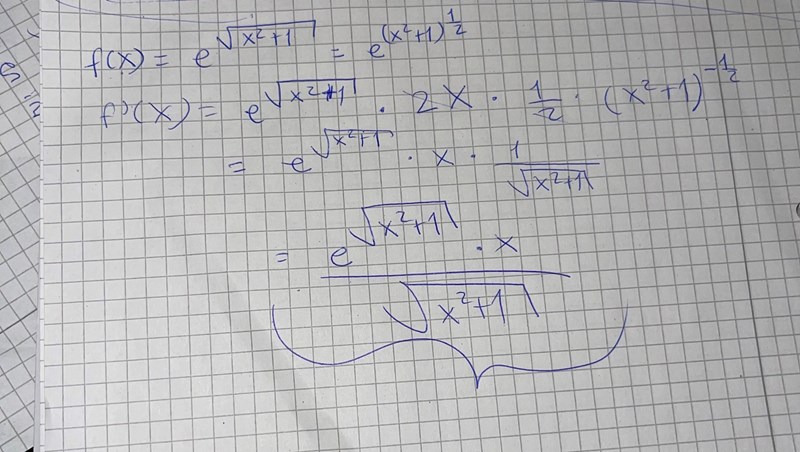 f(x) = e^√(x²+1) = e^(x²+1)^½
f'(x) = e^√(x²+1) · 2x · 1/2 · (x²+1)^-½
= e^√(x²+1) · x · 1/√(x²+1)
= e^√(x²+1) · x / √(x²+1)